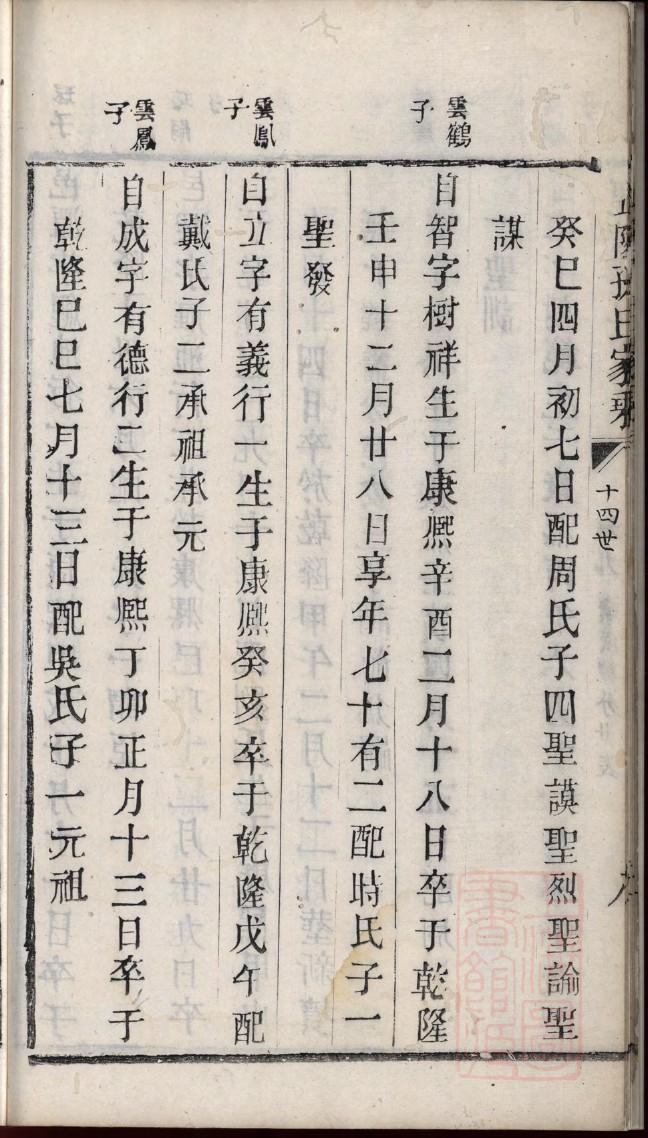 孫氏家乘
十四世
癸巳四月初七日配周氏子四聖謨聖烈聖論聖
謀
雲鶴子
自智字樹祥生于康熙辛酉二月十八日卒于乾隆
壬申十二月廿八日享年七十有二配時氏子一
聖發
雲鳳子
自立字有義行一生于康熙癸亥卒于乾隆戊午配
戴氏子二承祖承元
雲鳳子
自成字有德行二生于康熙丁卯正月十三日卒于
乾隆巳巳七月十三日配吳氏子一元祖